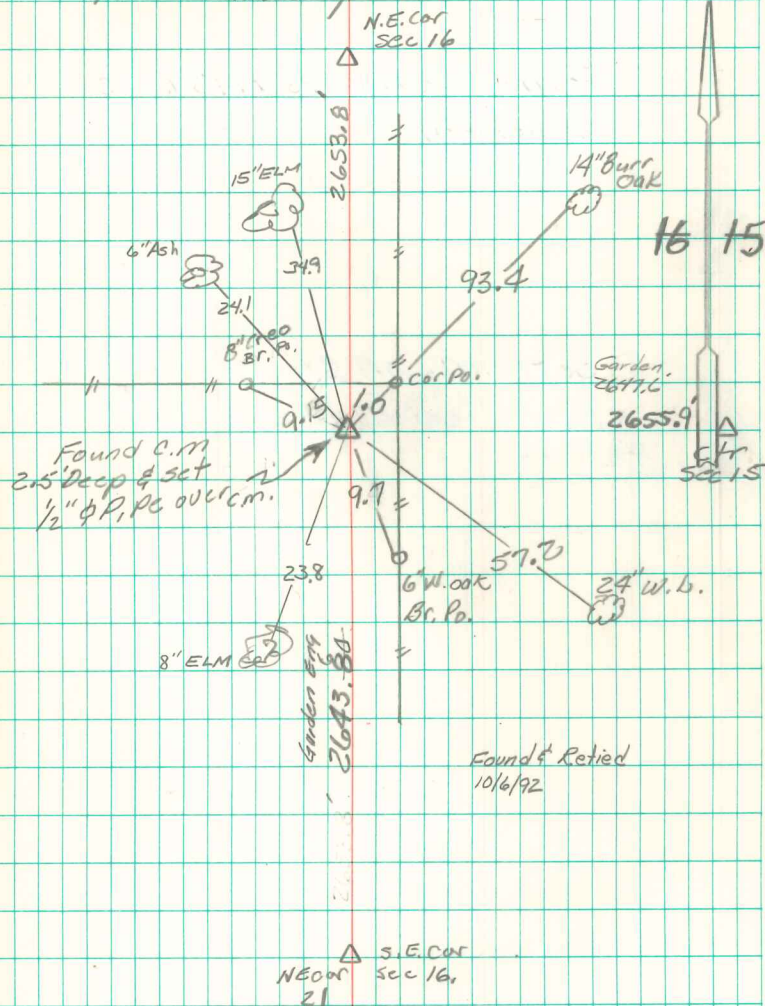 N.E. Cor
Sec 16
2653.8'
15" ELM
14" Burr
Oak
6" Ash
34.9
16 15
93.4
24.1
8" Creo
Br. Po.
Cor Po.
Garden.
2647.6
9.15
1.0
2655.9'
Ctr
Sec 15
Found C.M
2.5' Deep & Set
1/2" φ Pipe over c.m.
9.7
57.2
23.8
6" W. oak
Br. Po.
24" W.O.
8" ELM
Garden Eng
2643.80
Found & Retied
10/6/92
S.E. Cor
Sec 16.
NE cor
21